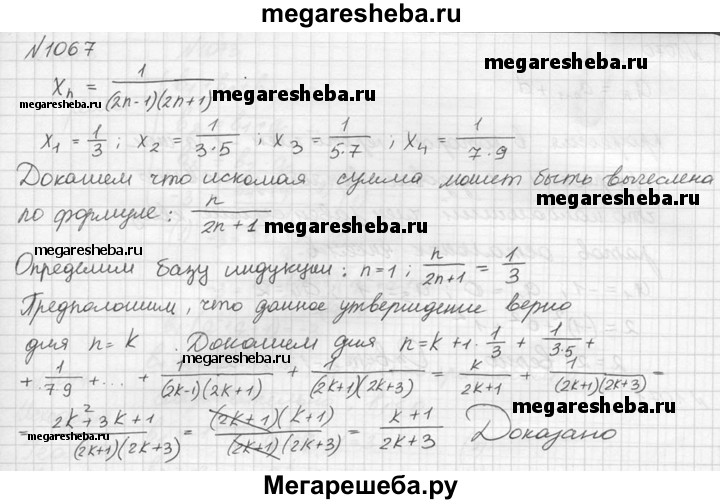 megaresheba.ru
N1067
Xn = 1/((2n-1)(2n+1))
megaresheba.ru megaresheba.ru
megaresheba.ru
X1 = 1/3 ; X2 = 1/(3·5) ; X3 = 1/(5·7) ; X4 = 1/(7·9)
Докажем что искомая сумма может быть вычеслена
по формуле: n/(2n+1)
megaresheba.ru
megaresheba.ru
Определим базу индукции: n=1 ; n/(2n+1) = 1/3
Предположим, что данное утверждение верно
для n=k. Докажем для n=k+1. 1/3 + 1/(3·5) +
megaresheba.ru
+ 1/(7·9) + ... + 1/((2k-1)(2k+1)) + 1/((2k+1)(2k+3)) = k/(2k+1) + 1/((2k+1)(2k+3)) =
megaresheba.ru
= (2k²+3k+1)/((2k+1)(2k+3)) = ((2k+1)(k+1))/((2k+1)(2k+3)) = (k+1)/(2k+3) Доказано
megaresheba.ru
megaresheba.ru
Мегарешеба.ру